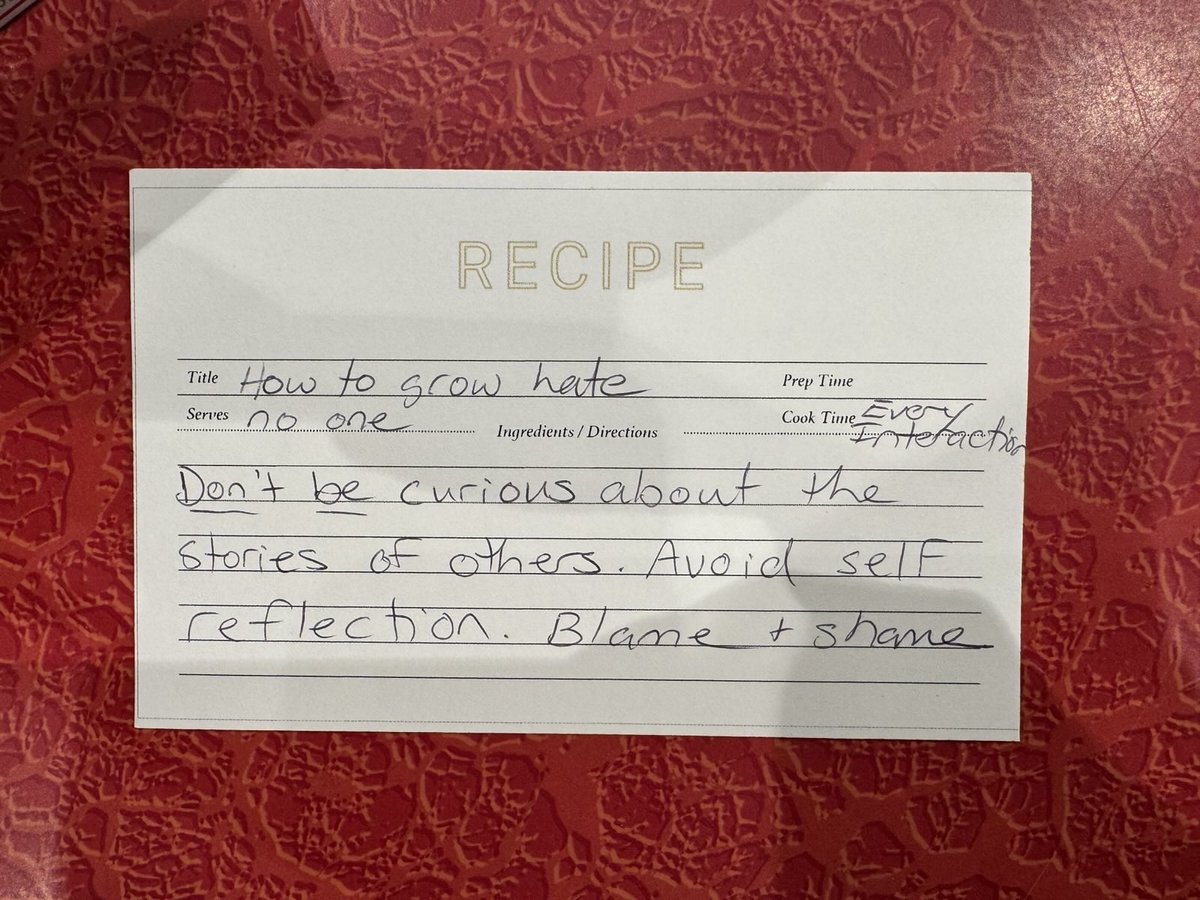 RECIPE
Title How to grow hate Prep Time
Serves no one Ingredients / Directions Cook Time Every Interaction
Don't be curious about the
stories of others. Avoid self
reflection. Blame + shame